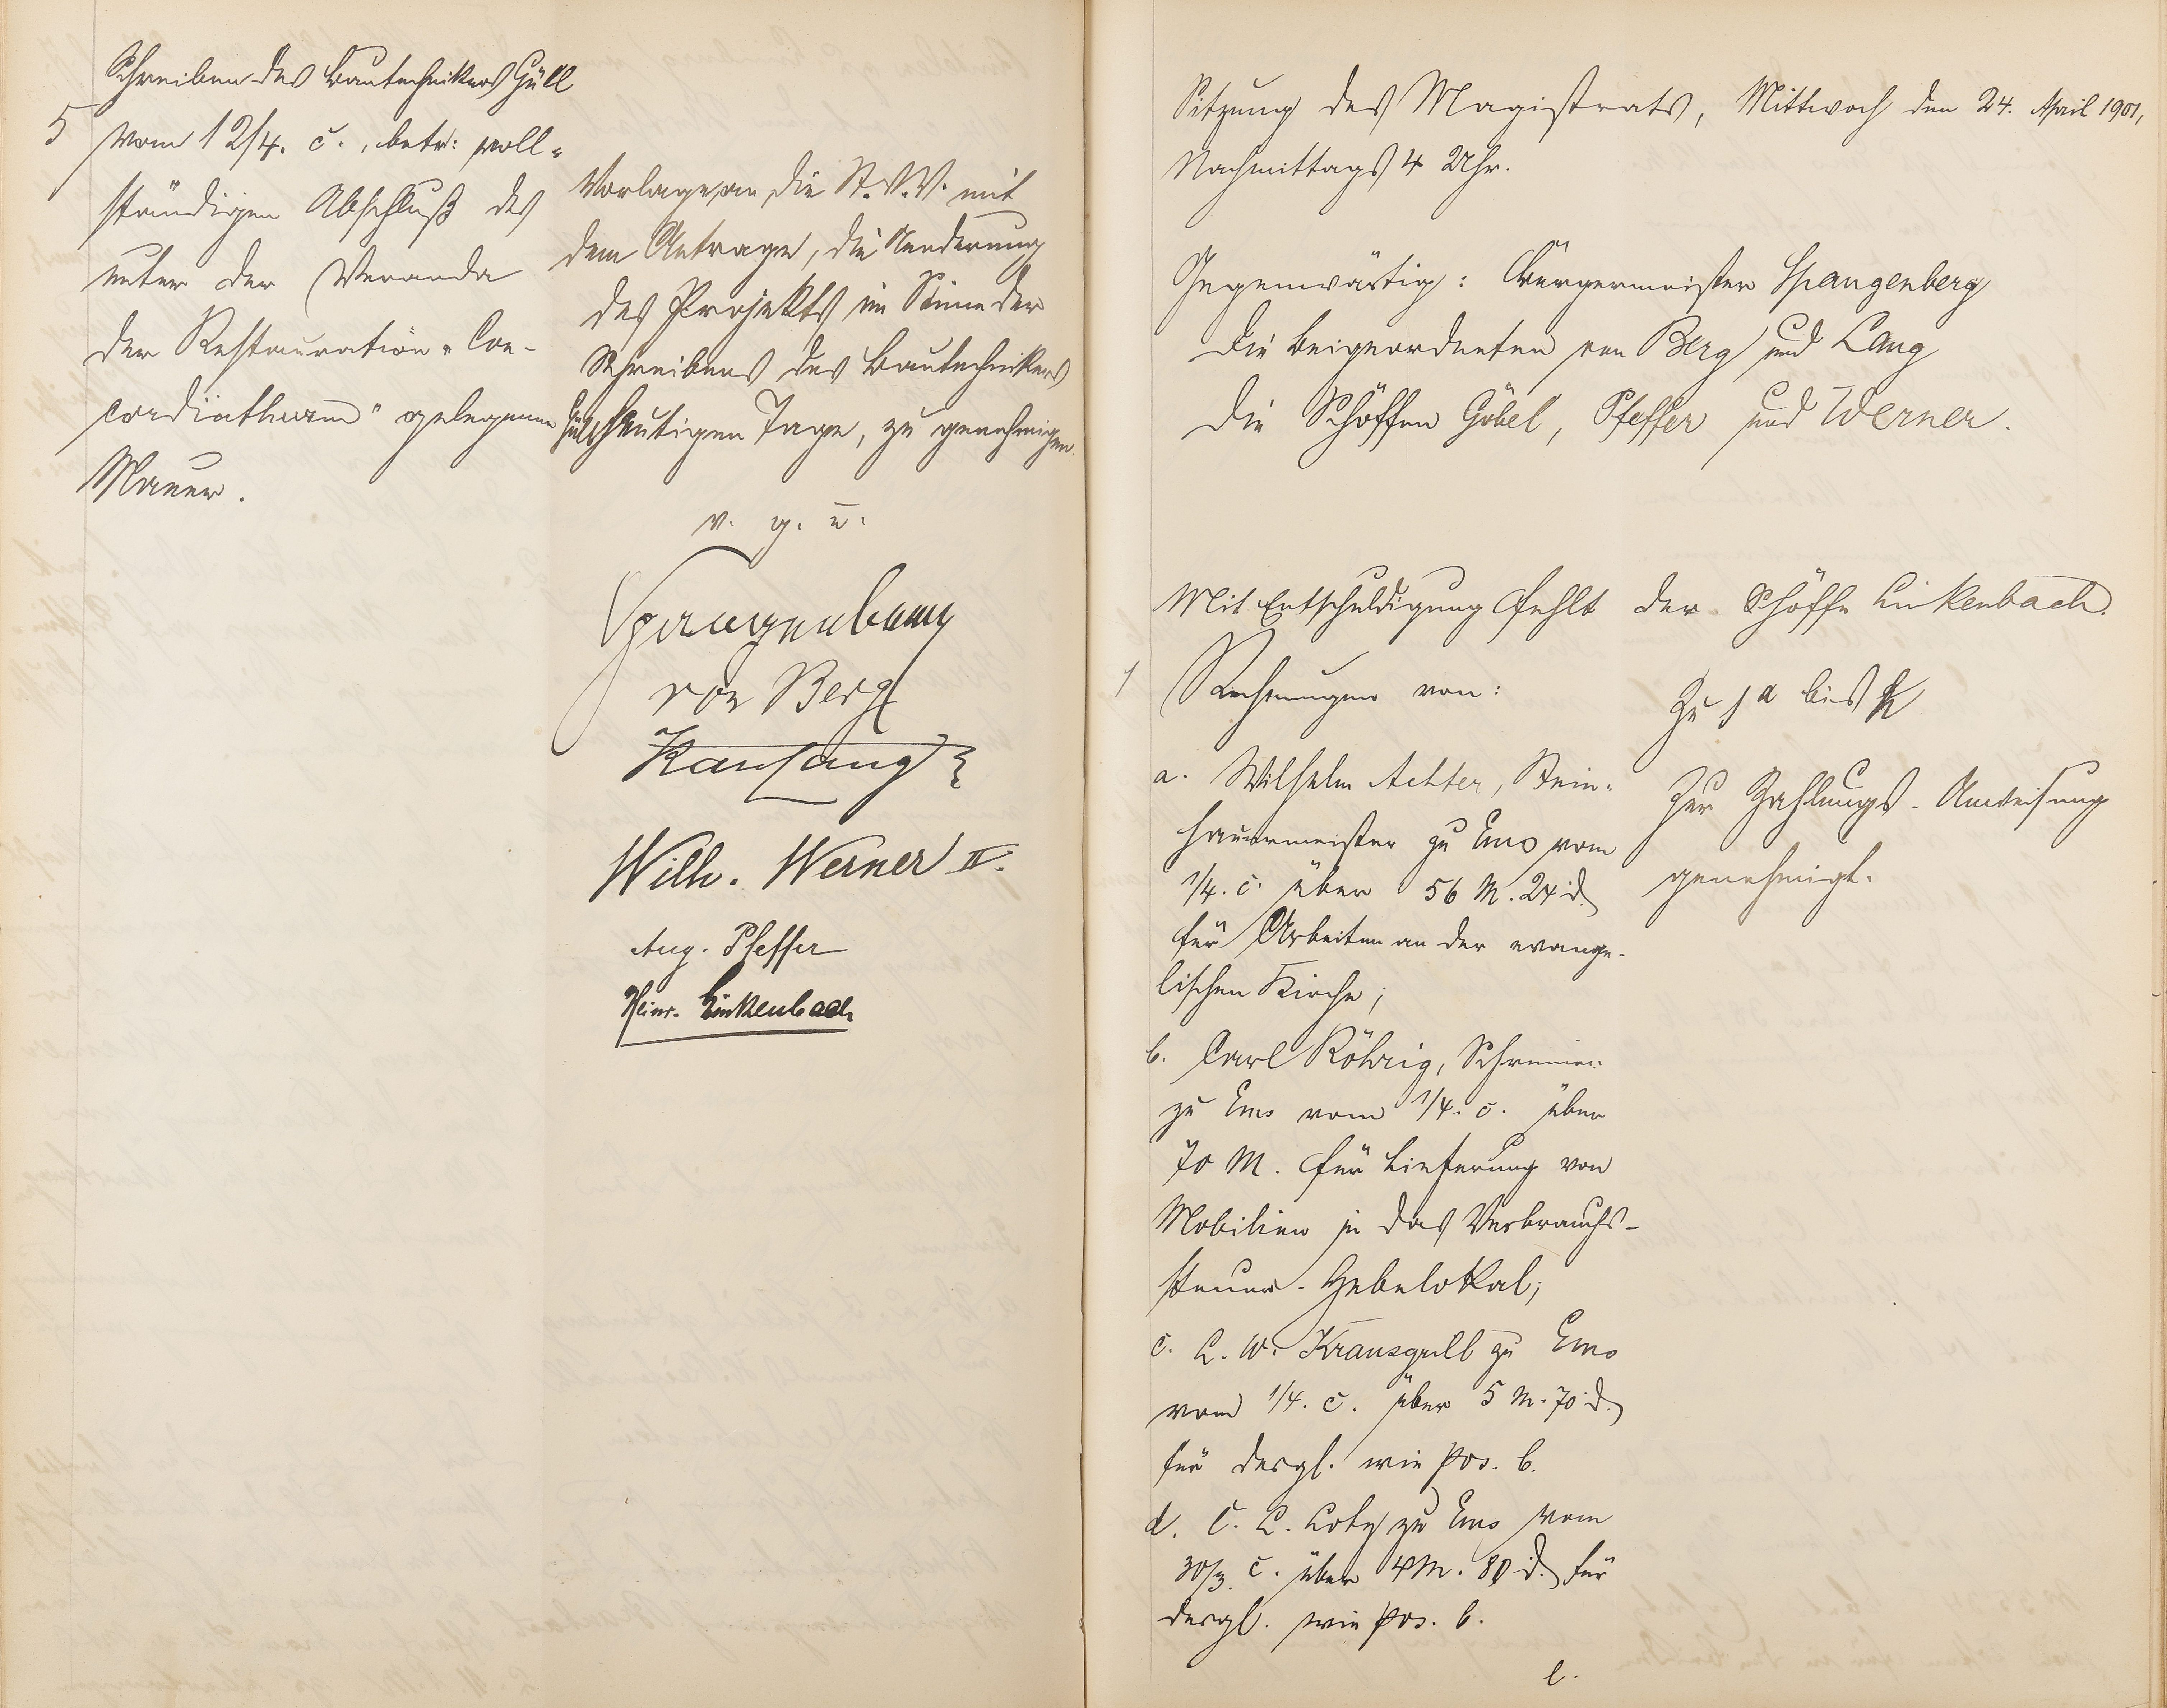 Schreiben des Bautechnikers Güll
5 vom 12/4. c., betr: voll-
ständigen Abschluß des
unter der Veranda
der Restauration "Con-
cordiathurm" gelegenen
Mauer.
Vorlage an die St.V.V. mit
dem Antrage, die Aenderung
des Projekts im Sinne der
Schreibens des Bautechnikers
Güll heutigen Tage, zu genehmigen.
v. g. u.
Spangenberg
von Berg
Karl Lang
Wilh. Werner II.
Aug. Pfeffer
Heinr. Linkenbach
Sitzung des Magistrats, Mittwoch den 24. April 1901,
Nachmittags 4 Uhr.
Gegenwärtig: Bürgermeister Spangenberg
Die Beigeordneten von Berg und Lang
Die Schöffen Göbel, Pfeffer und Werner.
Mit Entschuldigung fehlt der Schöffe Linkenbach.
1 Rechnungen von:
a. Wilhelm Achter, Stein-
hauermeister zu Ems vom
1/4. c. über 56 M. 24 d.
für Arbeiten an der evange-
lischen Kirche;
b. Carl Röhrig, Schreiner
zu Ems vom 1/4. c. über
70 M. für Lieferung von
Mobilien in das Verbrauchs-
steuer-Hebelokal;
c. L. W. Kransgrill zu Ems
vom 1/4. c. über 5 M. 70 d.
für desgl. wie pos. b.
d. C. L. Loty zu Ems vom
30/3. c. über 4 M. 80 d. für
desgl. wie pos. b.
e.
Zu 1 a bis k
Zur Zahlungs-Anweisung
genehmigt.